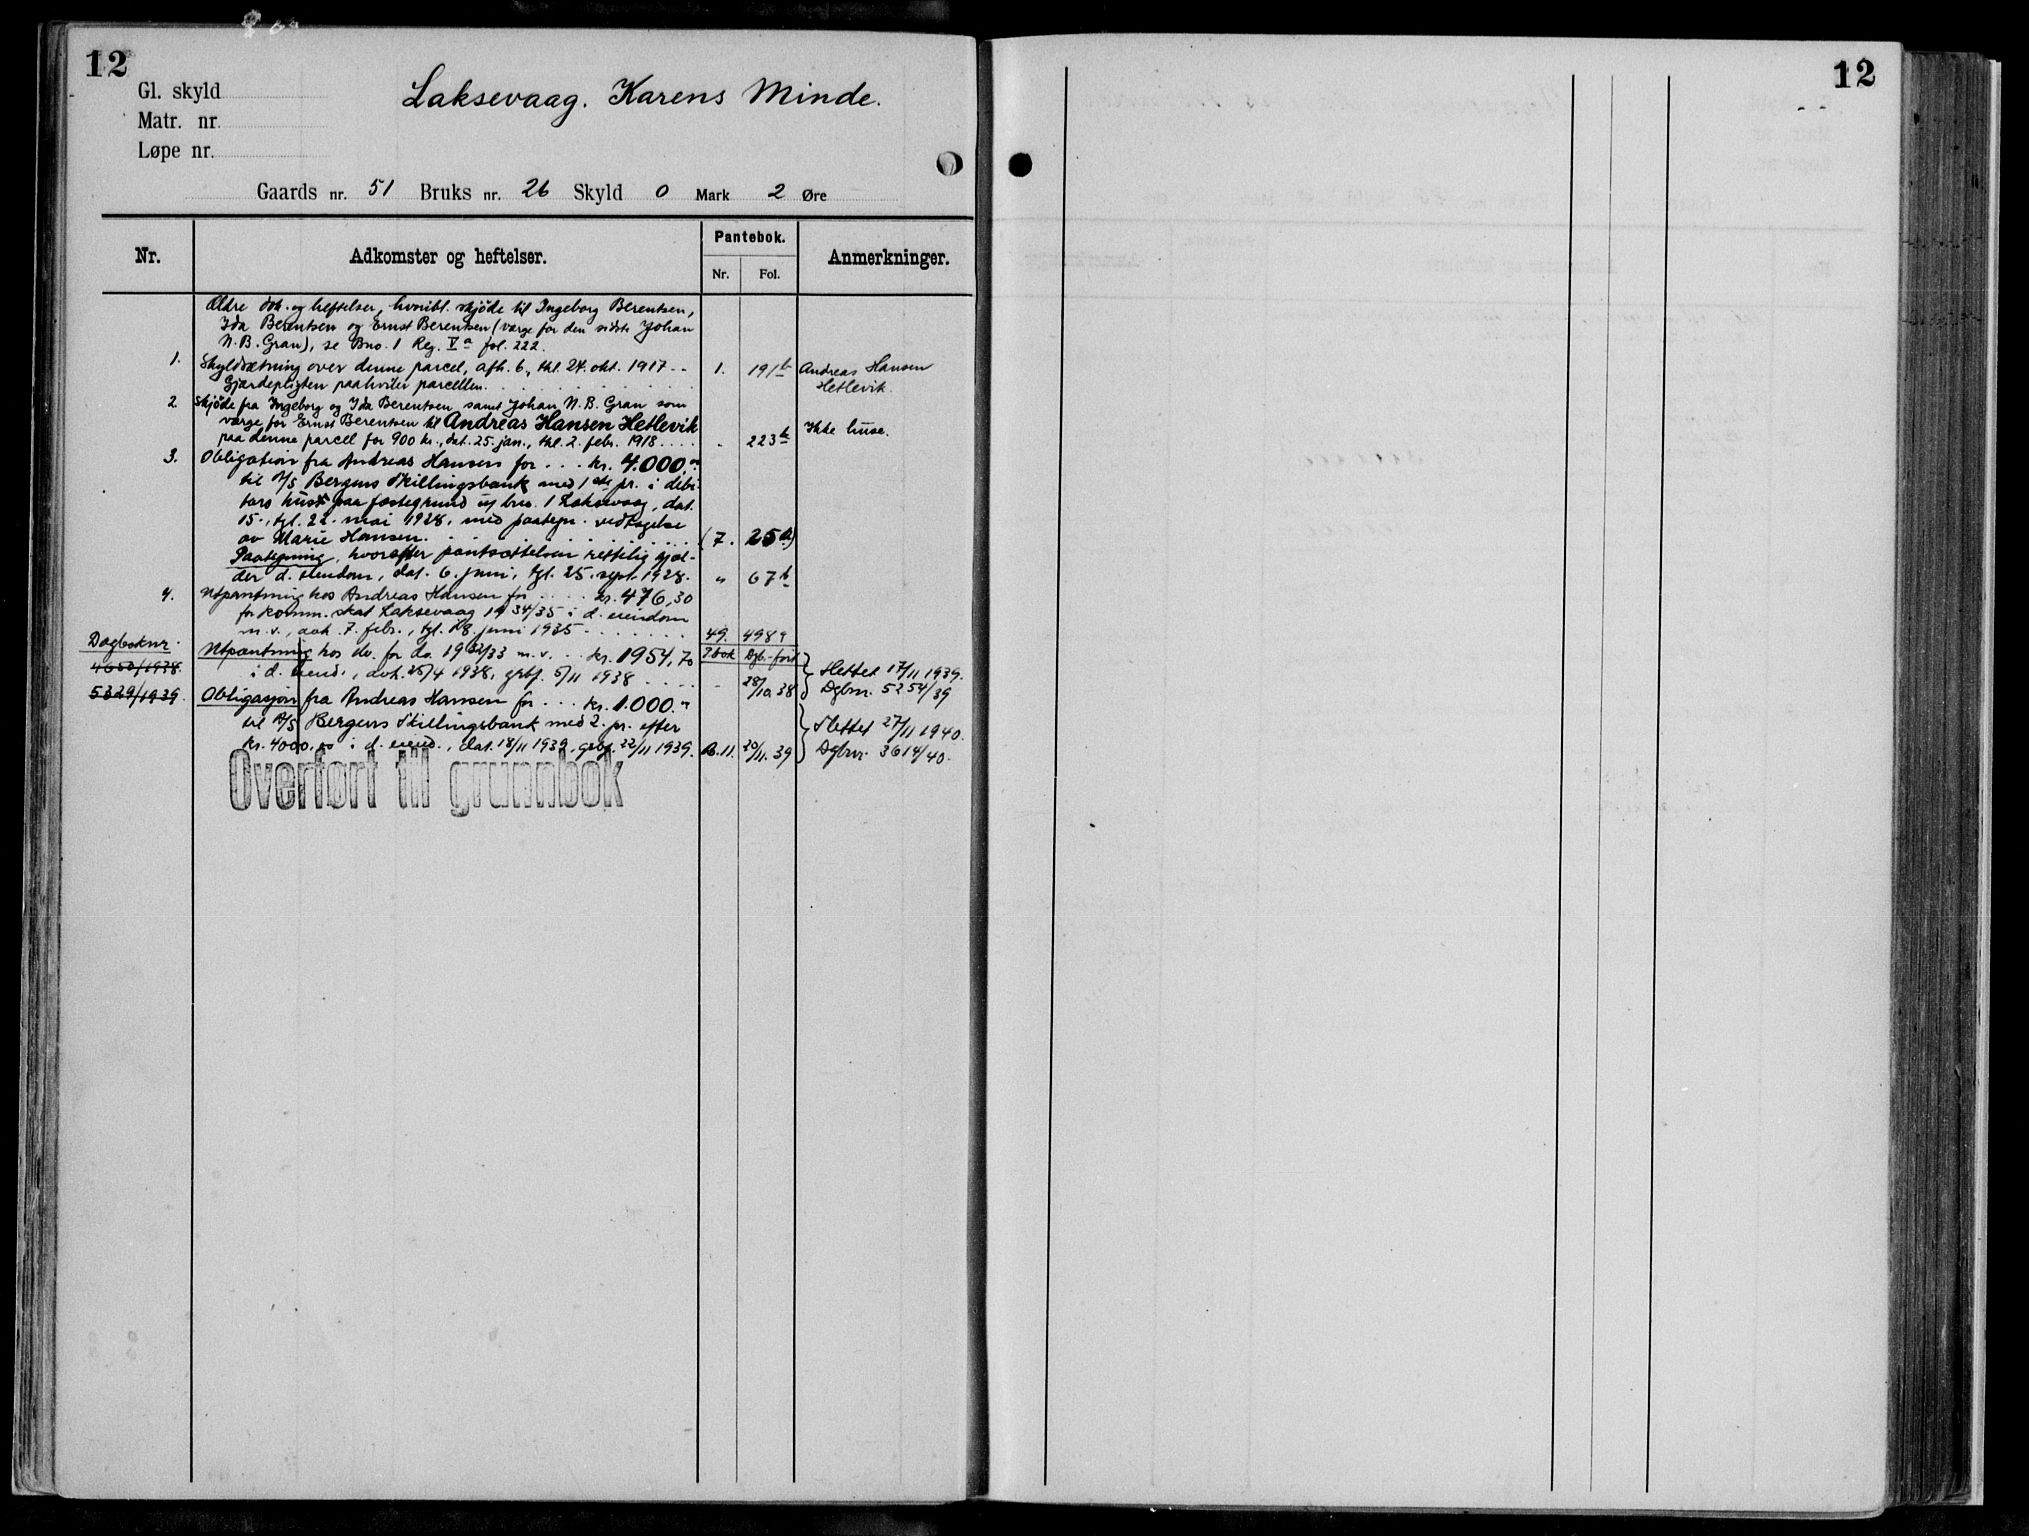 12
Gl. skyld
Matr. nr.
Løpe nr.
Laksevaag. Karens Minde.
Gaards nr. 51 Bruks nr. 26 Skyld 0 Mark 2 Øre
Nr. Adkomster og heftelser. Pantebok. Anmerkninger.
Nr. Fol.
Ældre dok. og heftelser, hvoribl. skjøde til Ingeborg Berentsen,
Ida Berentsen og Ernst Berentsen (værge for den sidste Johan
N. B. Gran), se Bno. 1 Reg. V a fol. 222.
1. Skyldsætning over denne parcel, afh. 6., thl. 24. okt. 1917 -- 1. 191 b Andreas Hansen
Gjærdepligten paahviler parcellen. Hetlevik.
2 Skjøde fra Ingeborg og Ida Berentsen samt Johan N. B. Gran som
værge for Ernst Berentsen til Andreas Hansen Hetlevik Ikke huse.
paa denne parcel for 900 kr., dat. 25. jan., thl. 2. febr. 1918 .... " 223 b
3. Obligation fra Andreas Hansen for ... kr. 4.000."
til A/S Bergens Skillingsbank med 1ste pr. i debi-
tors hus paa fæstegrund av bno. 1 Laksevaag, dat.
15., tgl. 22. mai 1928, med paategn. vedtagelse
av Marie Hansen. (7. 25 a)
Paategning, hvorefter pantsættelsen rettelig gjæl-
der d. eiendom, dat. 6. juni, tgl. 25. sept. 1928. " 67 b
4. Utpantning hos Andreas Hansen for .... kr. 476,30
for komm. skat Laksevaag 1934/35 i d. eiendom
m. v., avh. 7. febr., tgl. 18. juni 1935 ....... 49. 498
Dagboknr. Utpantning hos do. for do. 1932/33 m. v. .. kr. 1954,70 P.bok Dgb.-ført
4650/1938 i d. eiend., avh. 25/4 1938, grbf. 5/11 1938 .... - 28/10 38 Slettet 17/11 1939.
5329/1939 Obligasjon fra Andreas Hansen for ... kr. 1.000." Dgbnr. 5254/39
til A/S Bergens Skillingsbank med 2. pr. efter Slettet 27/11 1940.
kr. 4000,00 i d. eiend., dat. 18/11 1939, grbf. 22/11 1939. B.11. 20/11. 39 Dgbnr. 3614/40.
Overført til grunnbok
12